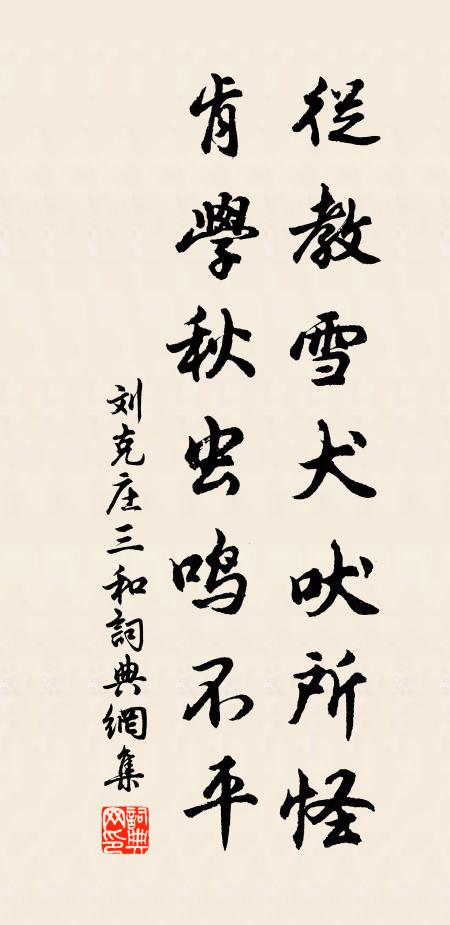 從教雪犬吠所怪
肯學秋虫鸣不平
刘克庄三和詞典網集
詞典
网印